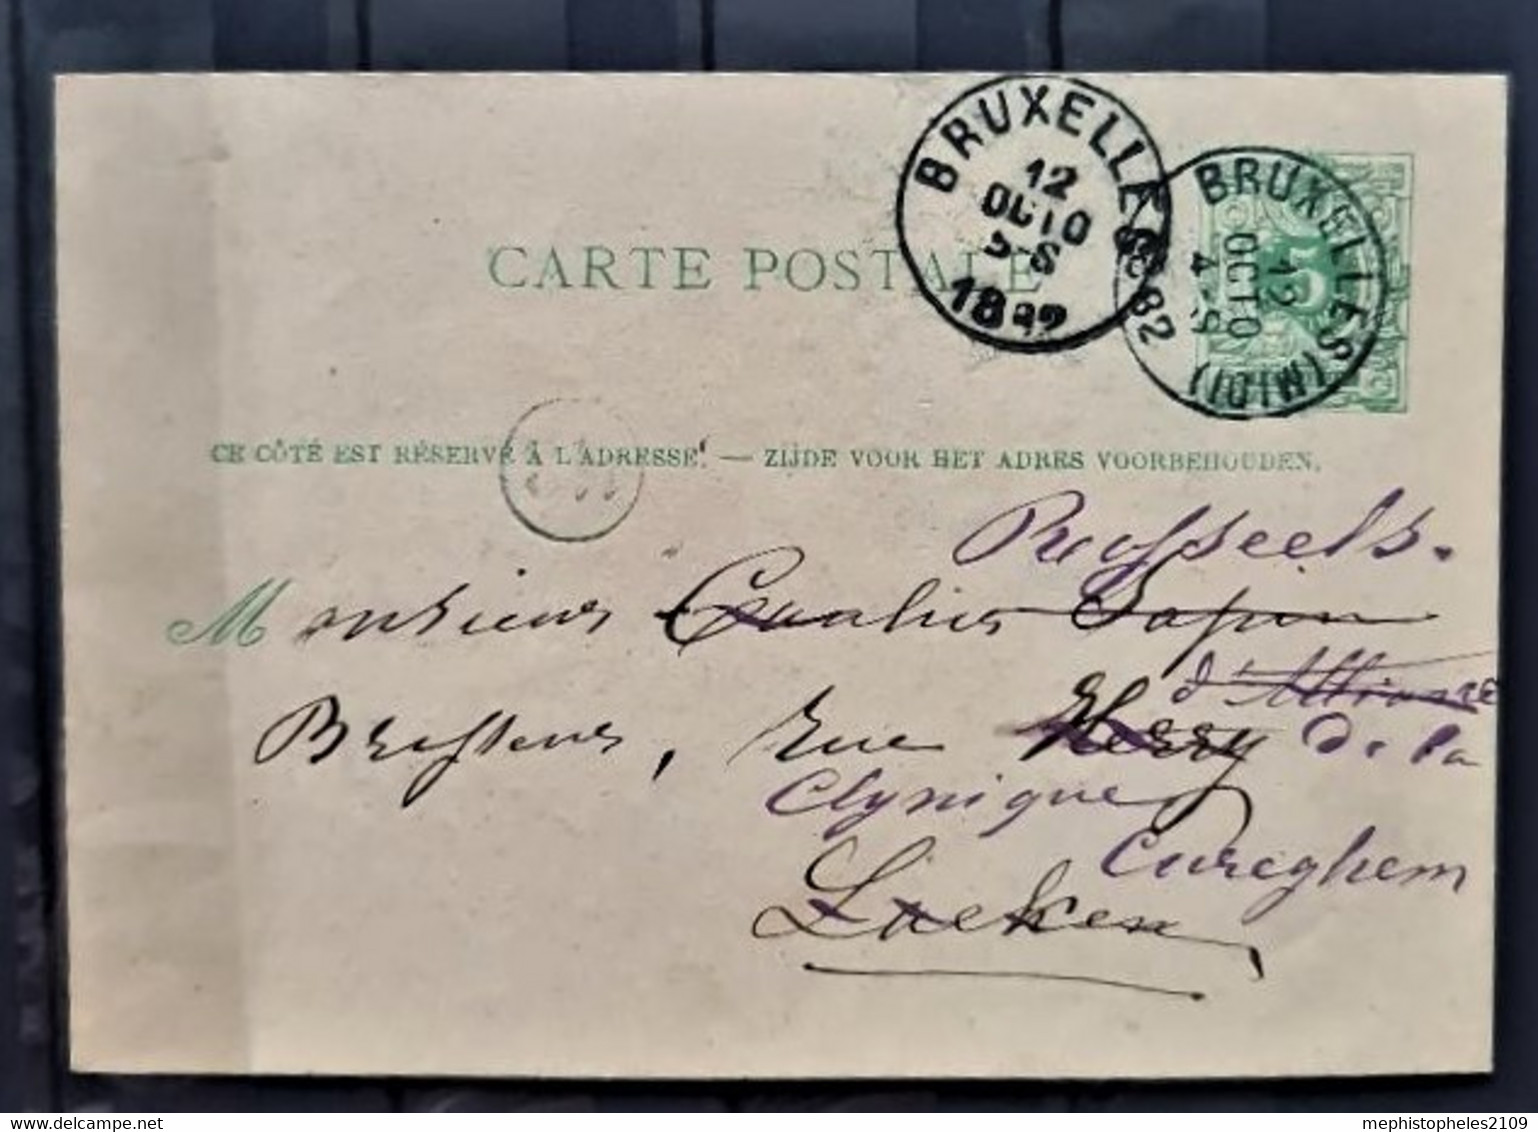 BRUXELLES
12
OCTO
5-S
1882
BRUXELLES (MIDI)
12
OCTO
4-S
82
5
CARTE POSTALE
CE CÔTÉ EST RÉSERVÉ À L'ADRESSE. — ZIJDE VOOR HET ADRES VOORBEHOUDEN.
Monsieur
d'Alliance
Brasseur, Rue Herry de la
Clynique
Cureghem
Laeken
mephistopheles2109